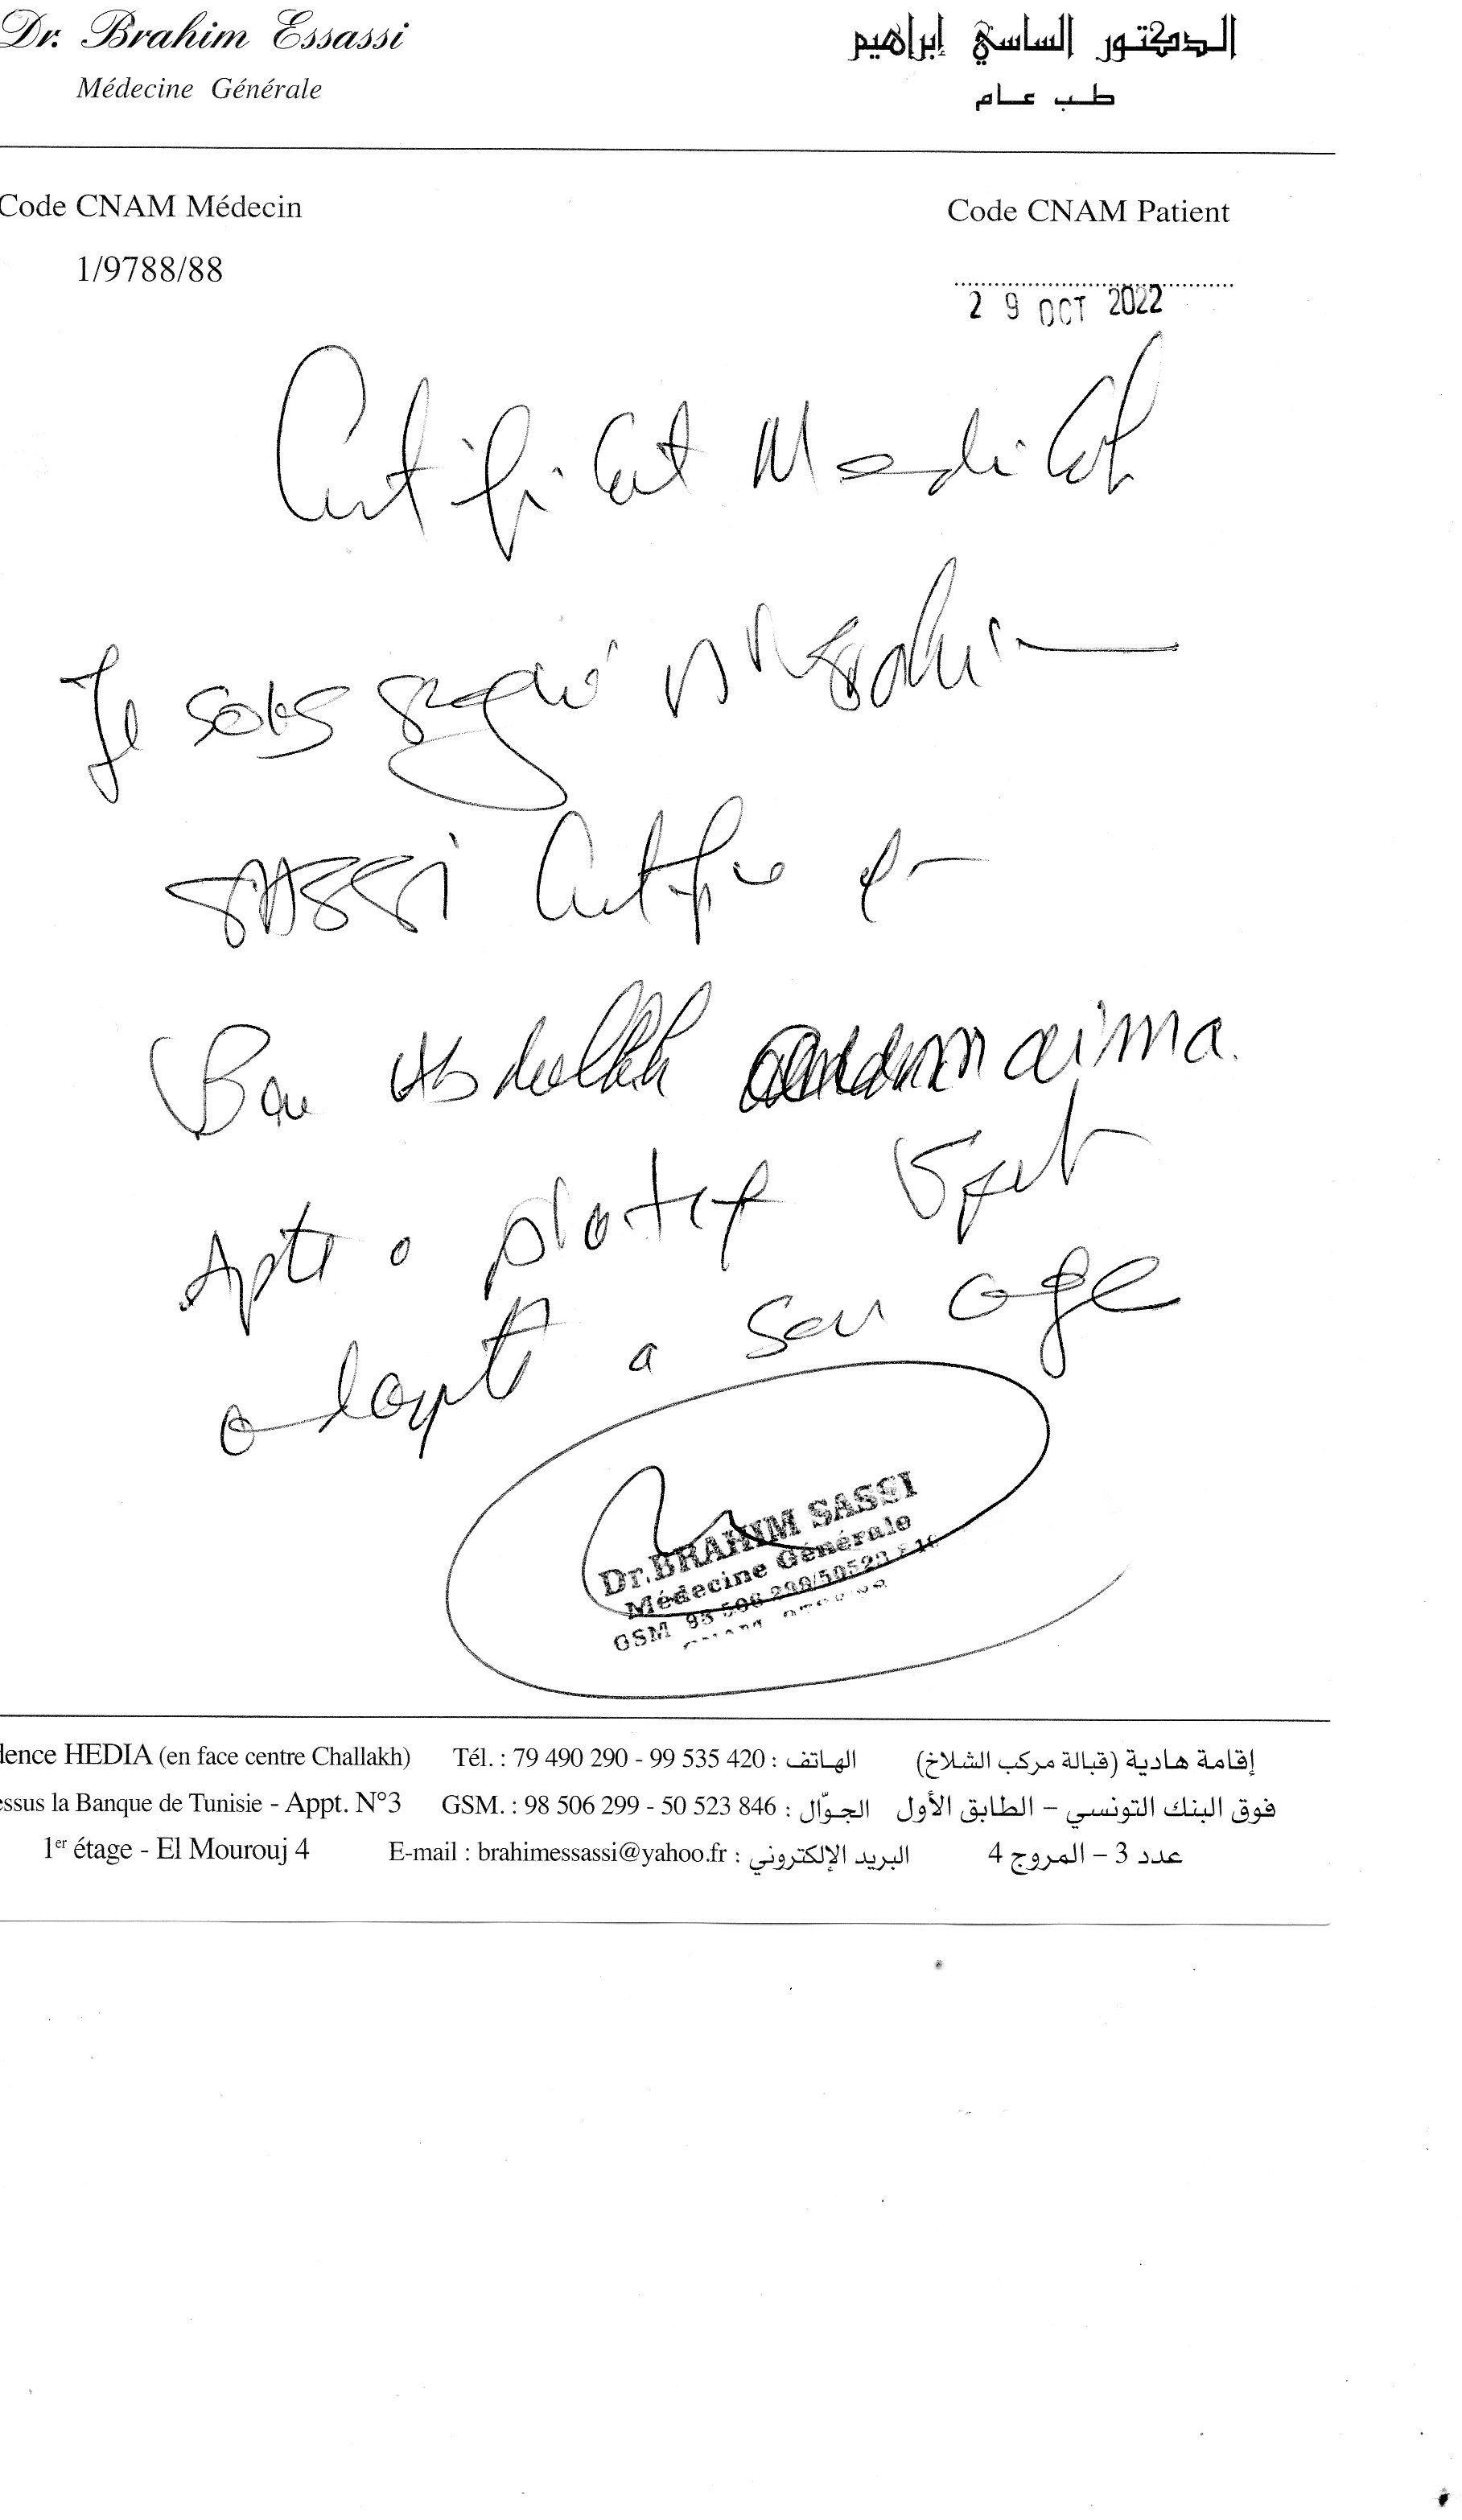 Dr. Brahim Essassi
الدكتور الساسي إبراهيم
Médecine Générale
طب عام
Code CNAM Médecin
Code CNAM Patient
1/9788/88
29 OCT 2022
Certificat Medical
Je soussigné Dr Brahim
SASSI Certifie q
Ben Abdallah aima.
Apte a pratiq Sport
adapté a son age
Dr. BRAHIM SASSI
Médecine Générale
GSM 98 506 299/50523
dence HEDIA (en face centre Challakh) Tél. : 79 490 290 - 99 535 420 : الهاتف إقامة هادية (قبالة مركب الشلاخ)
essus la Banque de Tunisie - Appt. N°3 GSM. : 98 506 299 - 50 523 846 : الجوّال فوق البنك التونسي – الطابق الأول
1er étage - El Mourouj 4 E-mail : brahimessassi@yahoo.fr : البريد الإلكتروني عدد 3 – المروج 4